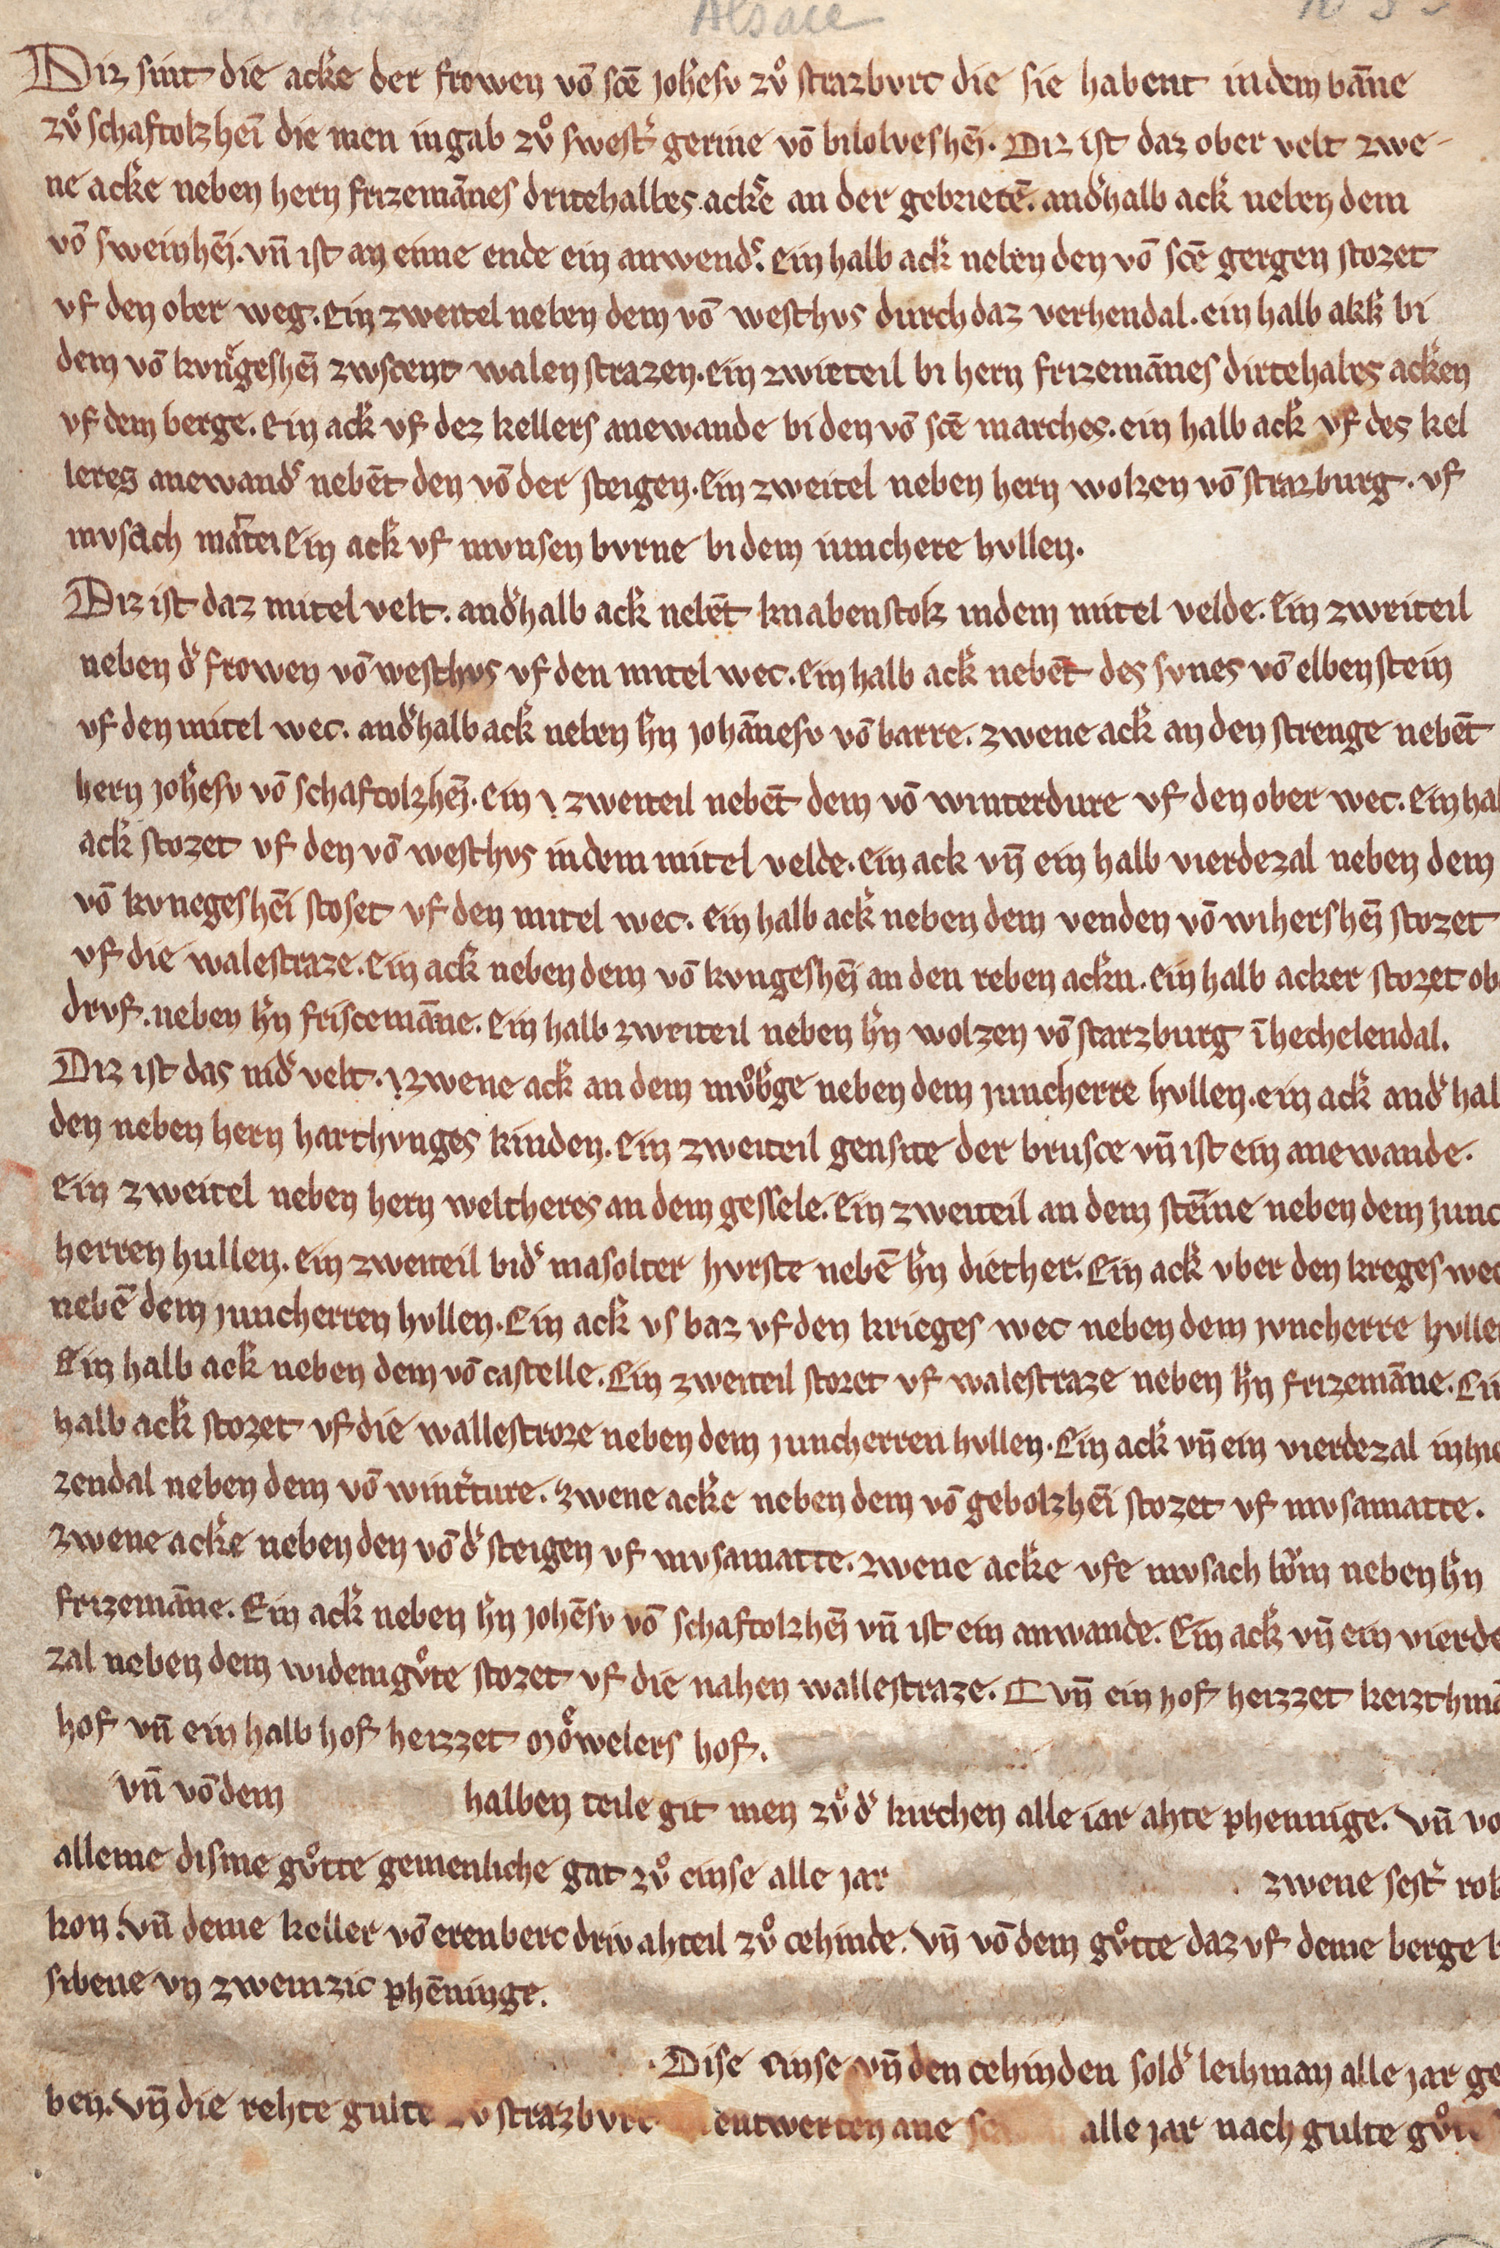 Alsace
Diz sint die ack͛e der frowen vō sc̄e joh̄esv zv̊ strazbvrc die sie habent in dem bāne
zv̊ schaftolzhei᷃ die men in gab zv̊ swest͛ gerine vō bilolveshēi. Diz ist daz ober velt zwe-
ne ack͛e neben hern frizemānes dritehalbes ack͛e an der gebreitē. and͛halb ack͛ neben dem
vō sweinhēi. vn̄ ist an eime ende ein anwend͛. Ein halb ack͛ neben den vō sc̄e gergen stozet
vf den ober weg. Ein zweitel neben dem vō westhvs durch daz verhendal. ein halb akk͛ bi
dem vō kvngeshēi zwscent walen strazen. ein zwieteil bi hern frizemānes dirtehalbes ack͛en
vf dem berge. Ein ack͛ vf dez kellers anewande bi den vō sc̄e marches. ein halb ack͛ vf des kel
leres anewand͛ nebēt den vō der steigen. Ein zweitel neben hern wolzen vō strazburg. vf
mvsach mat͛tei Ein ack͛ vf mvnsen bvrne bi dem iunchere hvllen.
Diz ist daz mitel velt. and͛halb ack͛ nebēt knabenstok in dem mitel velde. Ein zweiteil
neben d͛ frowen vō westhvs vf den mitel wec. Ein halb ack͛ nebēt des svnes vō elbenstein
vf den mitel wec. and͛halb ack͛ neben h͛n johānesv vō barre. zwene ack͛ an den strenge nebēt
hern joh̄esv vō schaftolzhēi. Ein zweiteil nebēt dem vō winterdure vf den ober wec. Ein hal
ack͛ stozet vf den vō westhvs in dem mitel velde. Ein ack͛ vn̄ ein halb vierdezal neben dem
vō kvnegeshēi stoset vf den mitel wec. Ein halb ack͛ neben dem venden vō wihershēi stozet
vf die walestraze. Ein ack͛ neben dem vō kvngeshēi an den reben ack͛n. Ein halb acker stozet ob
drvf. neben h͛n friscemāne. Ein halb zweiteil neben h͛n wolzen vō starzburg ī hechelendal.
Diz ist das nid͛ velt. zwene ack͛ an dem mv̊b͛ge neben dem juncherre hvllen. ein ack͛ and͛hal
den neben hern harthvnges kinden. Ein zweiteil gensite der brusce vn̄ ist ein anewande.
Ein zweitel neben hern weltheres an dem gessele. Ein zweiteil an dem stēine neben dem junc
herren hullen. Ein zweiteil bi d͛ masolter hvrste nebē h͛n diether. Ein ack͛ vber den kreges wec
nebē dem juncherren hvllen. Ein ack͛ vs baz vf den krieges wec neben dem jvncherre hvllen
Ein halb ack͛ neben dem vō castelle. Ein zweiteil stozet vf walestraze neben h͛n frizemāne. Ein
halb ack͛ stozet vf die wallestroze neben dem juncherren hvllen. Ein ack͛ vn̄ ein vierdezal
zendal neben dem vō wint͛ture. zwene ack͛e neben dem vō gebolzhēi stozet vf mvsamatte.
zwene ack͛e neben den vō d͛ steigen vf mvsamatte. zwene ack͛e vfe mvsach neben h͛n
frizemāne. Ein ack͛ neben h͛n johēsv vō schaftolzhēi vn̄ ist ein anwande. Ein ack͛ vn̄ ein vierde
zal neben dem widemgv̊te stozet vf die nahen wallestraze. vn̄ ein hof heizzet
hof vn̄ ein halb hof heizzet mo̊welers hof.
vn̄ vō dem halben teile git men zv̊ d͛ kirchen alle iar ahte phennige. Vn̄ vo
alleme disme gv̊tte gemenliche gat zv̊ cinse alle jar zwene sest͛ rok
kon. Vn̄ deme keller vō erenberc driv ahteil zv̊ cehinde. Vn̄ vō dem gv̊tte daz vf deme berge
sibene vn zweinzic phēninge.
Dise cinse vn̄ den cehinden sol d͛ lehman alle jar ge
ben. Vn̄ die rehte gulte strazbvrc entwerten ane alle jar nach gulte